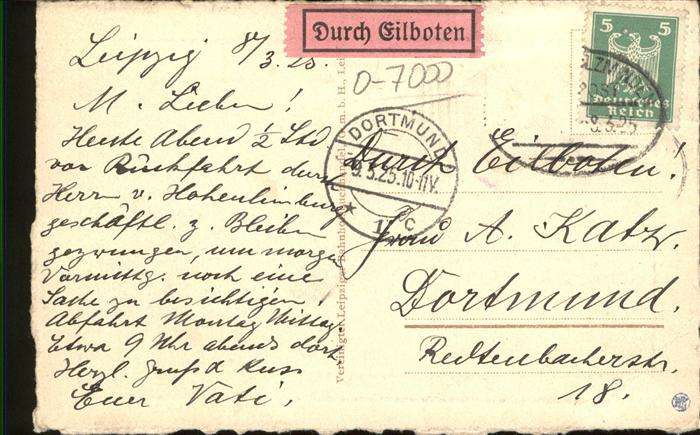 Durch Eilboten
Leipzig 8/3.25.
M. Lieben!
Heute Abend ½ Std
vor Rückfahrt durch
Herrn v. Hohenlimburg
geschäftl. z. Bleiben
gezwungen, um morgen
Vormittg. noch eine
Sache zu besichtigen!
Abfahrt Montag Mittag
Etwa 9 Uhr abends dort
Herzl. Gruß & Kuss
Euer Vati.
D-7000
DORTMUND
9.3.25.10-11V.
1 c
5 5
Deutsches
Reich
9.3.25
Durch Eilboten!
Frau A. Katz.
Dortmund.
Redtenbacherstr.
18.
Vereinigter Leipziger Bahnhofs
m. b. H.